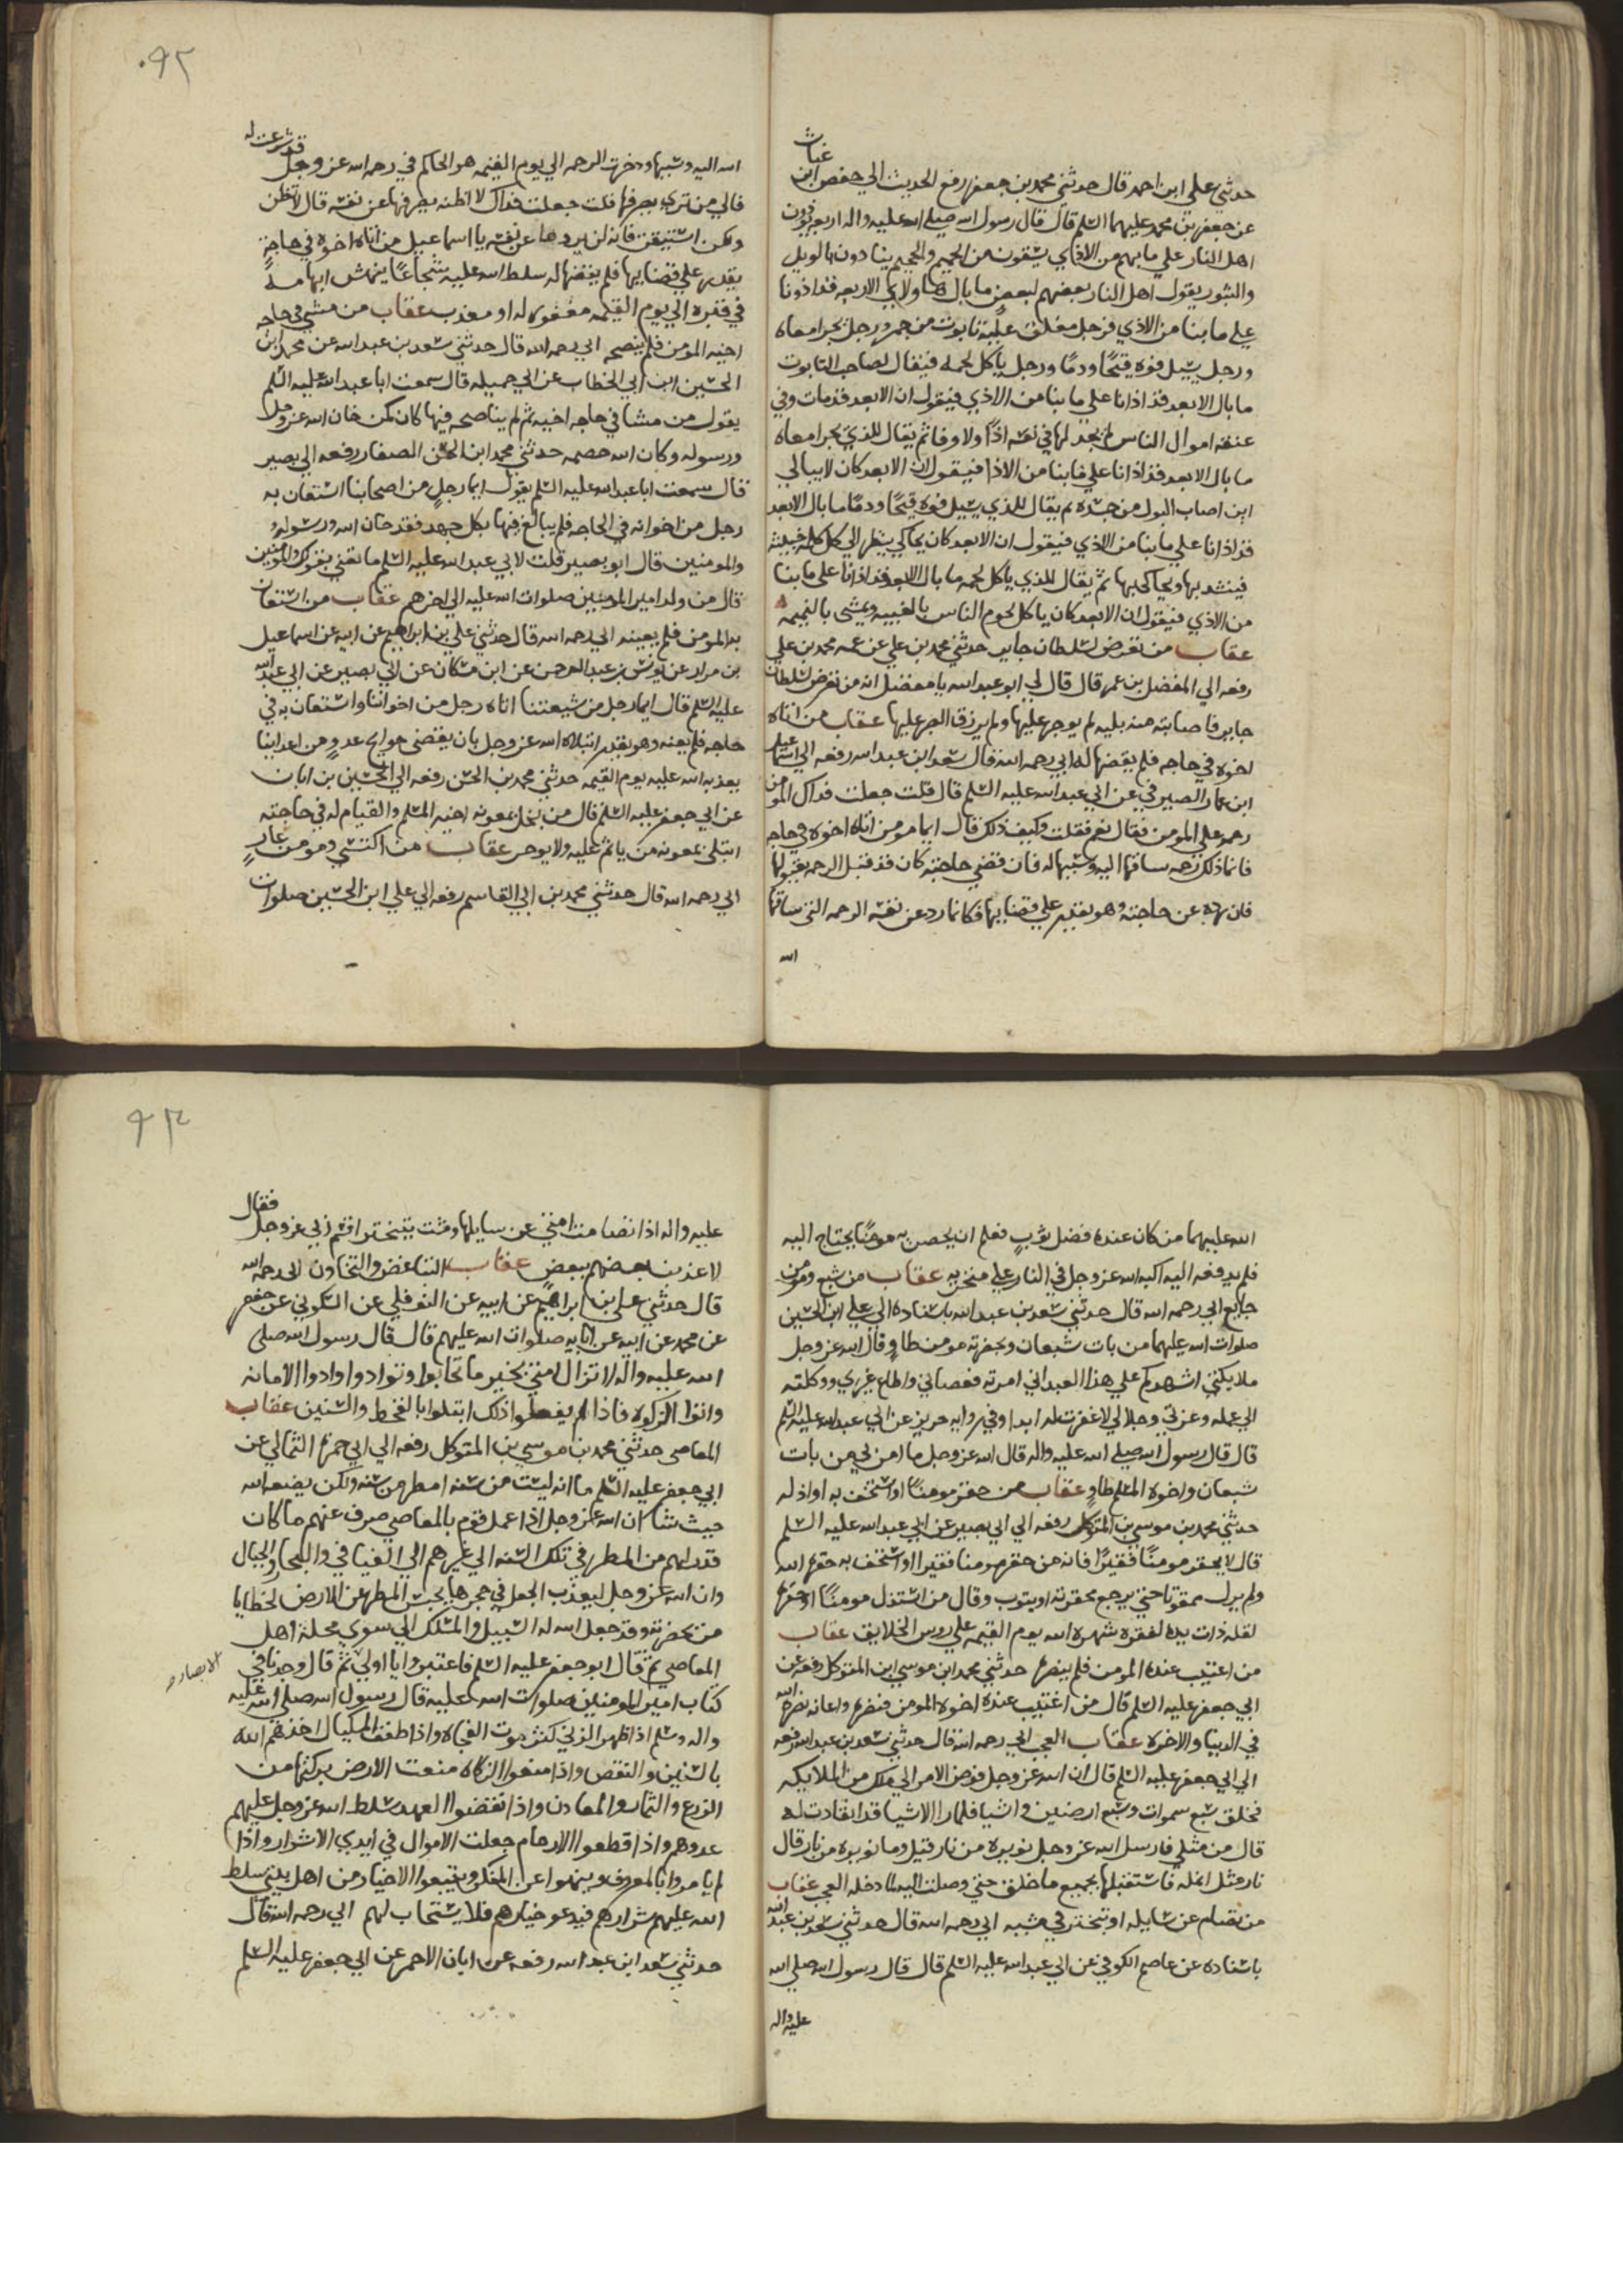 غياث
حدثني علي ابن احمد قال حدثني محمد بن جعفر رفع الحديث الي حفص ابن
عن جعفر بن محمد عليهما السلم قال قال رسول الله صلي الله عليه واله اربعه يوذون
اهل النار علي ما بهم من الاذي يسقون من الحميم والجحيم ينادون بالويل
والثبور يقول اهل النار بعضهم لبعض ما بال هاولاي الاربعه قد اذونا
علي ما بنا من الاذي فرجل مغلق عليه تابوت من جمر ورجل يجر امعاه
ورجل يسيل فوه قيحًا ودمًا ورجل ياكل لحمه فيقال لصاحب التابوت
ما بال الابعد قد اذانا علي ما بنا من الاذي فيقول ان الابعد قد مات وفي
عنقه اموال الناس لم يجد لها في نفسه اذًا ولا وفا ثم يقال للذي يجر امعاه
ما بال الابعد قد اذانا علي ما بنا من الاذا فيقول ان الابعد كان لا يبالي
اين اصاب البول من جسده ثم يقال للذي يسيل فوه قيحًا ودمًا ما بال الابعد
قد اذانا علي ما بنا من الاذي فيقول ان الابعد كان يحاكي ينظر الي كل كلمه خبيثه
فينشد بها ويحاكي بها ثم يقال للذي ياكل لحمه ما بال الابعد قد اذانا علي ما بنا
من الاذي فيقول ان الابعد كان ياكل لحوم الناس بالغيبه ويمشي بالنميمه
عقاب من تعرض لسلطان جاير حدثني محمد بن علي عن عمه محمد بن علي
رفعه الي المفضل بن عمر قال قال لي ابو عبد الله يا مفضل انه من تعرض لسلطان
جاير فاصابته منه بليه لم يوجر عليها ولم يرزق الصبر عليها عقاب من اتاه
اخوه في حاجه فلم يقضها له ابي رحمه الله قال سعد ابن عبد الله رفعه الي اسماعيل
ابن عمار الصيرفي عن ابي عبد الله عليه السلم قال قلت جعلت فداك المومن
رحمه علي المومن فقال نعم فقلت وكيف ذلك قال ايما مومن اتاه اخوه في حاجه
فانما ذلك رحمه ساقها اليه وسببها له فان قضي حاجته كان قد قبل الرحمه بقبولها
فان رده عن حاجته وهو يقدر علي قضايها فكانما رد عن نفسه الرحمه التي ساقها
الله
٩٢
الله اليه وسببها وذخرت الرحمه الي يوم القيمه هو الحاكم في رحمه الله عز وجل
قد شرعت له
فالي من تري يصرفها قلت جعلت فداك لا اظنه يصرفها عن نفسه قال لا تظن
ولكن استيقن فانه لن يردها عن نفسه يا اسماعيل من اتاه اخوه في حاجةٍ
يقدر علي قضايها فلم يقضها له سلط الله عليه شجاعًا ينهش ابهامه
في قبره الي يوم القيمه مغفور له او معذب عقاب من مشي في حاجه
اخيه المومن فلم ينصحه ابي رحمه الله قال حدثني سعد بن عبد الله عن محمد ابن
الحسين ابن ابي الخطاب عن ابي جميله قال سمعت ابا عبد الله عليه السلم
يقول من مشا في حاجه اخيه ثم لم يناصحه فيها كان كمن خان الله عز وجل
ورسوله وكان الله خصمه حدثني محمد ابن الحسن الصفار رفعه الي بصير
قال سمعت ابا عبد الله عليه السلم يقول ايما رجل من اصحابنا استعان به
رجل من اخوانه في الحاجه فلم يبالغ فيها بكل جهد فقد خان الله ورسوله
والمومنين قال ابو بصير قلت لابي عبد الله عليه السلم ما تعني بقولك والمومنين
قال من ولد امير المومنين صلوات الله عليه الي اخرهم عقاب من استعان
به المومن فلم يعينه ابي رحمه الله قال حدثني علي بن ابراهيم عن ابيه عن اسماعيل
بن مرار عن يونس بن عبد الرحمن عن ابن مسكان عن ابي بصير عن ابي عبد الله
عليه السلم قال ايما رجل من شيعتنا اتاه رجل من اخواننا واستعان به في
حاجه فلم يعنه وهو يقدر ابتلاه الله عز وجل بان يقضي حوايج عدو من اعداينا
يعذبه الله عليه يوم القيمه حدثني محمد بن الحسن رفعه الي الحسين بن ابان
عن ابي جعفر عليه السلم قال من بخل بمعونه اخيه المسلم والقيام له في حاجته
ابتلي بمعونه من ياثم عليه ولا يوجر عقاب من اكتسي ومومن عارٍ
ابي رحمه الله قال حدثني محمد بن ابي القاسم رفعه الي علي ابن الحسين صلوات
الله عليهما من كان عنده فضل ثوب فعلم ان بحضرته مومنًا يحتاج اليه
فلم يدفعه اليه اكبه الله عز وجل في النار علي منخريه عقاب من شبع ومومن
جايع ابي رحمه الله قال حدثني سعد بن عبد الله باسناده الي علي ابن الحسين
صلوات الله عليهما من بات شبعان وبحضرته مومن طاوٍ قال الله عز وجل
ملايكتي اشهدكم علي هذا العبد اني امرته فعصاني واطاع غيري ووكلته
الي عمله وعزتي وجلالي لا غفرت له ابدا وفي روايه حريز عن ابي عبد الله عليه السلم
قال قال رسول الله صلي الله عليه واله قال الله عز وجل ما امن بي من بات
شبعان واخوه المسلم طاوٍ عقاب من حقر مومنًا او استخف به او اذله
حدثني محمد بن موسي بن المتوكل رفعه الي ابي بصير عن ابي عبد الله عليه السلم
قال لا يحقر مومنًا فقيرًا فانه من حقر مومنا فقيرا او استخف به حقره الله
ولم يزل ممقوتا حتي يرجع محقرته او يتوب وقال من استذل مومنًا او حقره
لقله ذات يده لفقره شهره الله يوم القيمه علي روس الخلايق عقاب
من اغتيب عنده المومن فلم ينصره حدثني محمد ابن موسي ابن المتوكل رفعه عن
ابي جعفر عليه السلم قال من اغتيب عنده اخوه المومن فنصره واعانه نصره الله
في الدنيا والاخره عقاب العجب ابي رحمه الله قال حدثني سعد بن عبد الله رفعه
الي ابي جعفر عليه السلم قال ان الله عز وجل فوض الامر الي ملك من الملايكه
فخلق سبع سموات وسبع ارضين واشيا فلما را الاشيا قد انقادت له
قال من مثلي فارسل الله عز وجل نويره من نار قيل وما نويره من نار قال
نار مثل انمله فاستقبلها بجميع ما خلق حتي وصلت اليه لما دخله العجب عقاب
من تصام عن سايله او تبختر في مشيه ابي رحمه الله قال حدثني سعد بن عبد الله
باسناده عن عاصم الكوفي عن ابي عبد الله عليه السلم قال قال رسول الله صلي الله
عليه واله
٩٣
فقال
عليه واله اذا تصامت امتي عن سايلها ومشت بتبختر اقسم ربي عز وجل
لاعذبن بعضهم ببعض عقاب التباغض والتخاون ابي رحمه الله
قال حدثني علي ابن ابراهيم عن ابيه عن النوفلي عن السكوني عن جعفر
عن محمد عن ابيه عن ابايه صلوات الله عليهم قال قال رسول الله صلي
الله عليه واله لا تزال امتي بخير ما تحابوا وتوادوا وادوا الامانه
واتوا الزكوه فاذا لم يفعلوا ذلك ابتلوا بالقحط والسنين عقاب
المعاصي حدثني محمد بن موسي بن المتوكل رفعه الي ابي حمزه الثمالي عن
ابي جعفر عليه السلم ما انه ليست من سنه امطر من سنه ولكن يضعه الله
حيث شا ان الله عز وجل اذا عمل قوم بالمعاصي صرف عنهم ما كان
قدر لهم من المطر في تلك السنه الي غيرهم الي الفيافي والبحار والجبال
وان الله عز وجل ليعذب الجعل في جحرها بحبس المطر عن الارض لخطايا
من بحضرته وقد جعل الله له السبيل والمسلك الي سوي محلة اهل
المعاصي ثم قال ابو جعفر عليه السلم فاعتبروا يا اولي ثم قال وجدنا في
الابصار
كتاب امير المومنين صلوات الله عليه قال رسول الله صلي الله عليه
واله وسلم اذا ظهر الزني كثر موت الفجاه واذا طفف المكيال اخذهم الله
بالسنين والنقص واذا منعوا الزكاه منعت الارض بركتها من
الزرع والثمار والمعادن واذا نقضوا العهد سلط الله عز وجل عليهم
عدوهم واذا قطعوا الارحام جعلت الاموال في ايدي الاشرار واذا
لم يامروا بالمعروف وينهوا عن المنكر ويتبعوا الاخيار من اهل بيتي سلط
الله عليهم شرارهم فيدعو خيارهم فلا يستجاب لهم ابي رحمه الله قال
حدثني سعد ابن عبد الله رفعه عن ابان الاحمر عن ابي جعفر عليه السلم